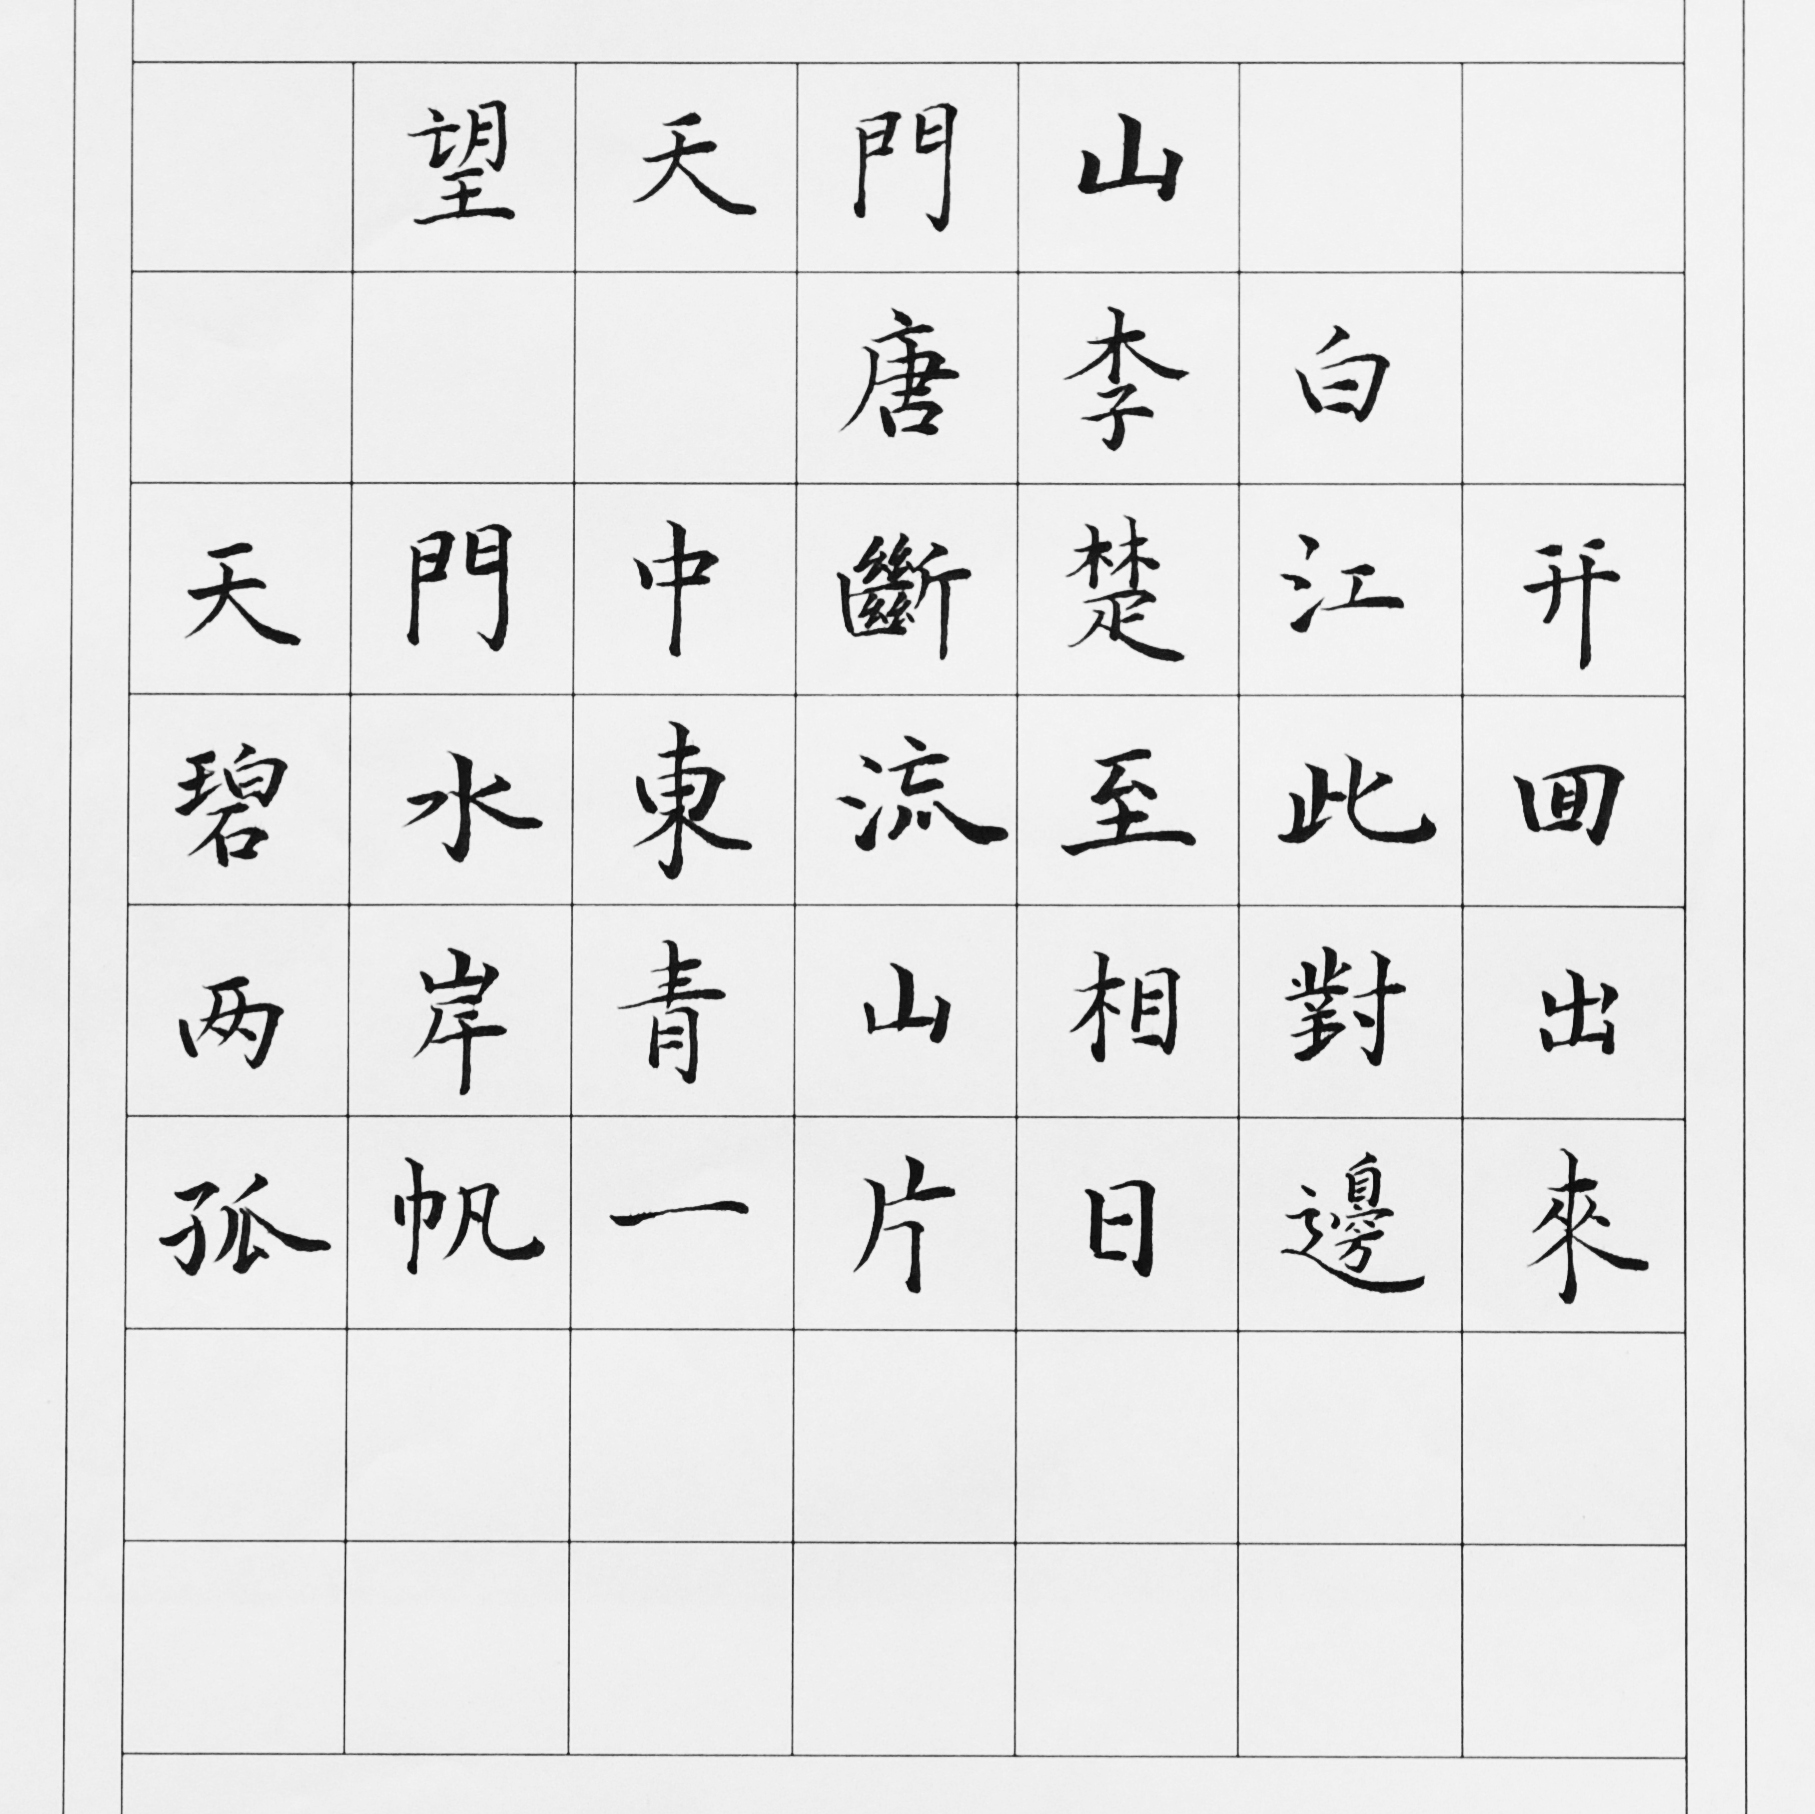 望天門山
唐李白
天門中斷楚江开
碧水東流至此回
两岸青山相對出
孤帆一片日邊來